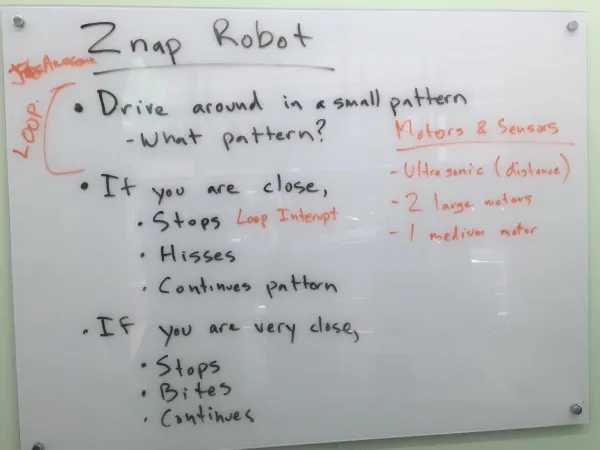 Znap Robot
Awesome
LOOP.
• Drive around in a small pattern
- What pattern?
Motors & Sensors
- Ultrasonic (distance)
- 2 large motors
- 1 medium motor
• If you are close,
• Stops Loop Interupt
• Hisses
• Continues pattern
• If you are very close,
• Stops
• Bites
• Continues